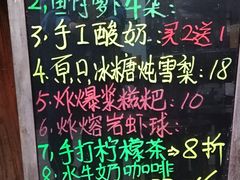 3.手工酸奶:买2送1
4.贡只冰糖炖雪梨:18
5.火火爆浆糍粑:10
6.火火熔岩虾球:
7.手打柠檬茶→8折
8.水牛奶咖啡